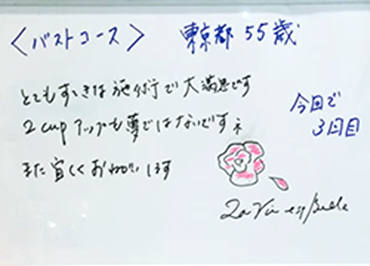 〈バストコース〉 東京都 55歳
とてもすてきな施術で大満足です
2cupアップも夢ではないですネ
また宜しくお願いします
今回で
3回目
La Vie est Belle